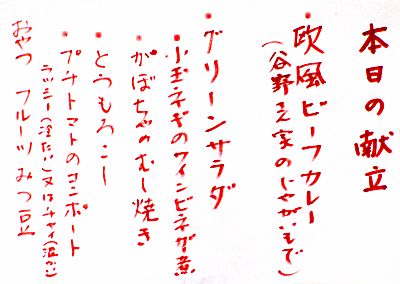 本日の献立
・欧風ビーフカレー
(谷野さん家のじゃがいもで)
・グリーンサラダ
・小玉ネギのワインビネガー煮
・かぼちゃのむし焼き
・とうもろこし
・プチトマトのコンポート
ラッシー(冷たい)又はチャイ(温かい)
おやつ フルーツみつ豆